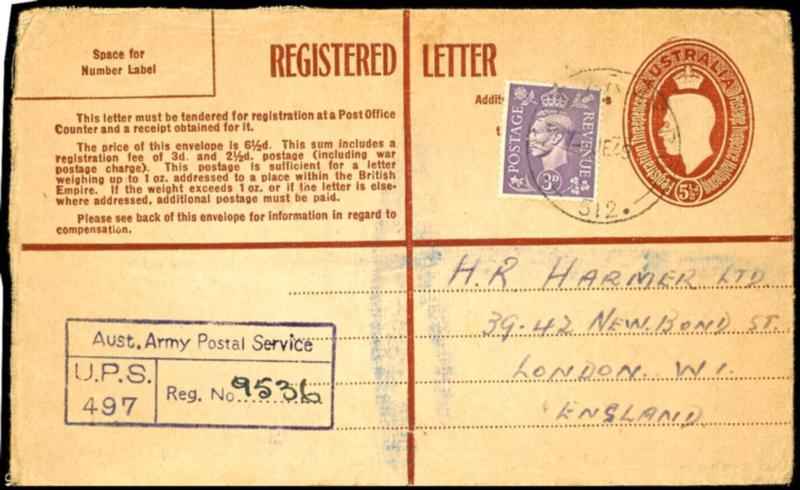 Space for
Number Label
REGISTERED LETTER
This letter must be tendered for registration at a Post Office
Counter and a receipt obtained for it.
The price of this envelope is 6½d. This sum includes a
registration fee of 3d. and 2½d. postage (including war
postage charge). This postage is sufficient for a letter
weighing up to 1 oz. addressed to a place within the British
Empire. If the weight exceeds 1 oz. or if the letter is else-
where addressed, additional postage must be paid.
Please see back of this envelope for information in regard to
compensation.
POSTAGE
REVENUE
3D
AUSTRALIA
Registration Threepence
Postage Twopence Halfpenny
5½D
512.
H.R HARMER LTD.
39-42 NEW.BOND ST.
LONDON. W1.
ENGLAND
Aust. Army Postal Service
U.P.S.
497
Reg. No. 9536